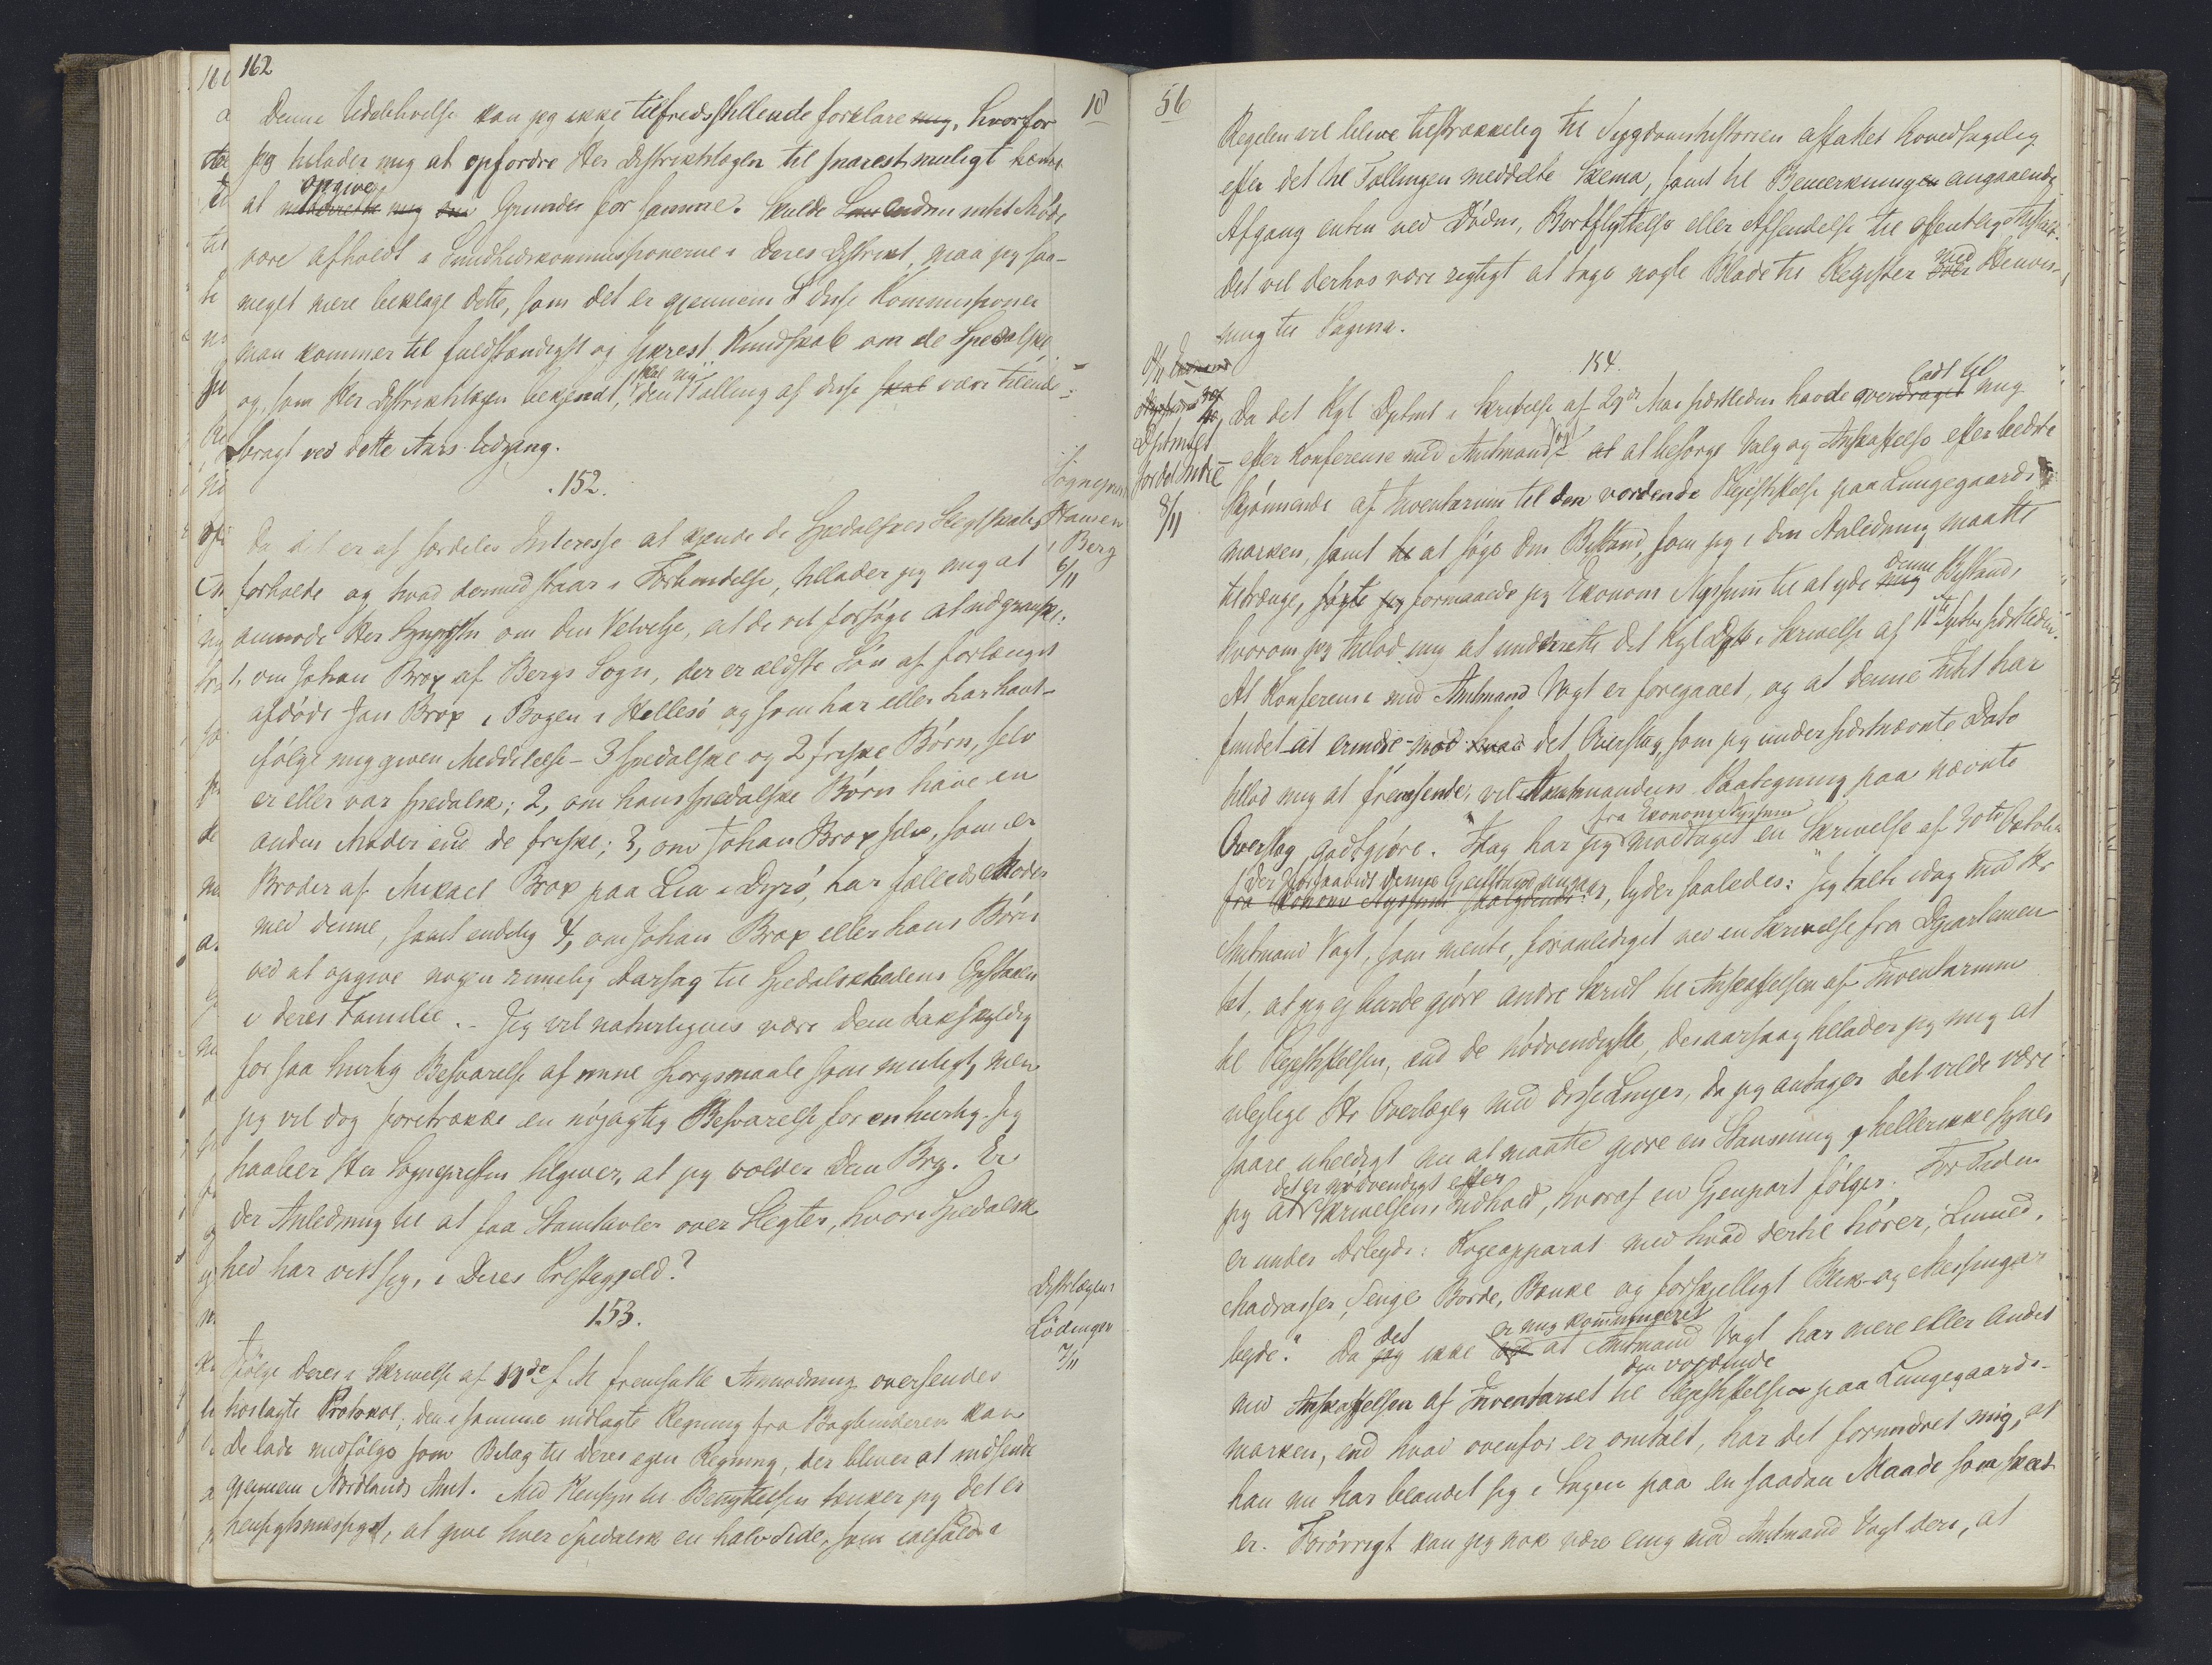 162
18
Denne Udeblivelse kan jeg ikke tilfredsstillende forklare mig, hvorfor
jeg tillader mig at opfordre Her Distriktslægen til snarest muligt
at opgive Grunden for samme. Skulde endnu intet Møde
være afholdt i Sundhedskommissionerne i Deres Distrikt, maa jeg saa-
meget mere beklage dette, som det er gjennem disse Kommissioner
man kommer til fuldstændigst og sikrest Kundskab om de Spedalske
og, som Her Distriktslægen bekjendt, skal ny Tælling af disse være tilende-
bragt ved dette Aars Udgang.
152.
Sognepr.
Hansen
i Berg
6/11
Da det er af særdeles Interesse at kjende de Spedalskes Slegtskabs
forholde og hvad dermed staar i Forbindelse, tillader jeg mig at
anmode Her Sognepresten om den Velvilje, at de vil forsøge at udgranske:
1, om Johan Brox af Bergs Sogn, der er ældste Søn af forlængst
afdøde Jan Brox i Bogen i Hellesø og som har eller har havt -
ifølge mig given Meddelelse - 3 spedalske og 2 friske Børn, selv
er eller var spedalsk; 2, om hans spedalske Børn have en
anden Moder end de friske; 3, om Johan Brox selv, som er
Broder af Mikael Brox paa Lia i Dyrø, har fælleds Moder
med denne, samt endelig 4, om Johan Brox eller hans Børn
ved at opgive nogen rimelig Aarsag til Spedalskhedens Opstaaen
i deres Familie. - Jeg vil naturligvis være Dem takskyldig
for saa hurtig Besvarelse af mine Spørgsmaale som muligt, men
jeg vil dog foretrække en nøjagtig Besvarelse for en hurtig. Jeg
haaber Her Sognepresten tilgiver, at jeg volder Dem Bry. Er
der Anledning til at faa Stamtavler over Slegter, hvori Spedalsk-
hed har vist sig, i Deres Prestegjeld?
153.
Distrlægen i
Lødingen
7/11
Ifølge Deres i Skrivelse af 19de f. M. fremsatte Anmodning oversendes
hoslagte Protokol; den i samme indlagte Regning fra Bogbinderen kan
De lade medfølge som Bilag til Deres egen Regning, der bliver at indsende
gjennem Nordlands Amt. Med Hensyn til Benyttelsen tænker jeg det er
hensigtsmæssigst, at give hver Spedalsk en halv Side, som i
56
Regelen vil blive tilstrækkelig til Sygdomshistorien affattet hovedsagelig
efter det til Tællingen meddelte Skema, samt til Bemerkningen angaaende
Afgang enten ved Døden, Bortflyttelse eller Afsendelse til offentlig
Det vil derhos være rigtigt at tage nogle Blade til Register med Henvis-
ning til Pagina.
154.
Dptmtet
for det Indre
8/11
Da det Kgl Dptmt i Skrivelse af 29de Mai sidstleden havde overladt til mig
efter Konference med Amtmand Vogt at besørge Valg og Anskaffelse efter bedste
Skjønnende af Inventarium til den vordende Plejestiftelse paa Lungegaards
marken, samt at søge den Bistand, som jeg i den Anledning maatte
tiltrænge, formaaede jeg Ekonom Nyssum til at yde denne Bistand,
hvorom jeg tillod mig at underrette det Kgl Dpt i Skrivelse af 11te Septbr sidstleden.
At Konference med Amtmand Vogt er foregaaet, og at denne intet har
fundet at erindre mod det Overslag, som jeg under sidstnævnte Dato
tillod mig at fremsende, vil Amtmandens Paategning paa nævnte
Overslag godtgjøre. Idag har jeg fra Ekonom Nyssum modtaget en Skrivelse af 30te Oktober
der forsaavidt denne Gjenstand angaar, lyder saaledes: "Jeg talte idag med Hr
Amtmand Vogt, som mente, foranlediget ved en Skrivelse fra Departemen-
tet, at jeg ej burde gjøre andre Skridt til Anskaffelsen af Inventarium
til Plejestiftelsen, end de nødvendigste, desaarsaag tillader jeg mig at
uleilige Hr Overlægen med disse Linjer, da jeg antager det vilde være
saare uheldigt nu at maatte gjøre en Standsning, hellerikke synes
jeg det er nødvendigt efter Skrivelsens Indhold, hvoraf en Gjenpart følger. For Tiden
er under Arbeyde: Kogeapparat med hvad dertil hører, Linned,
Madrasser, Senge Borde, Bænke og forskjelligt Blik- og Messingar-
beyde." Da det ikke er mig kommuniceret at Amtmand Vogt har mere eller andet
med Anskaffelsen af Inventariet til den vordende Plejestiftelse paa Lungegaards-
marken, end hvad ovenfor er omtalt, har det forundret mig, at
han nu har blandet sig i Sagen paa en saadan Maade som skeet
er. Forøvrigt kan jeg nok være enig med Amtmand Vogt deri, at